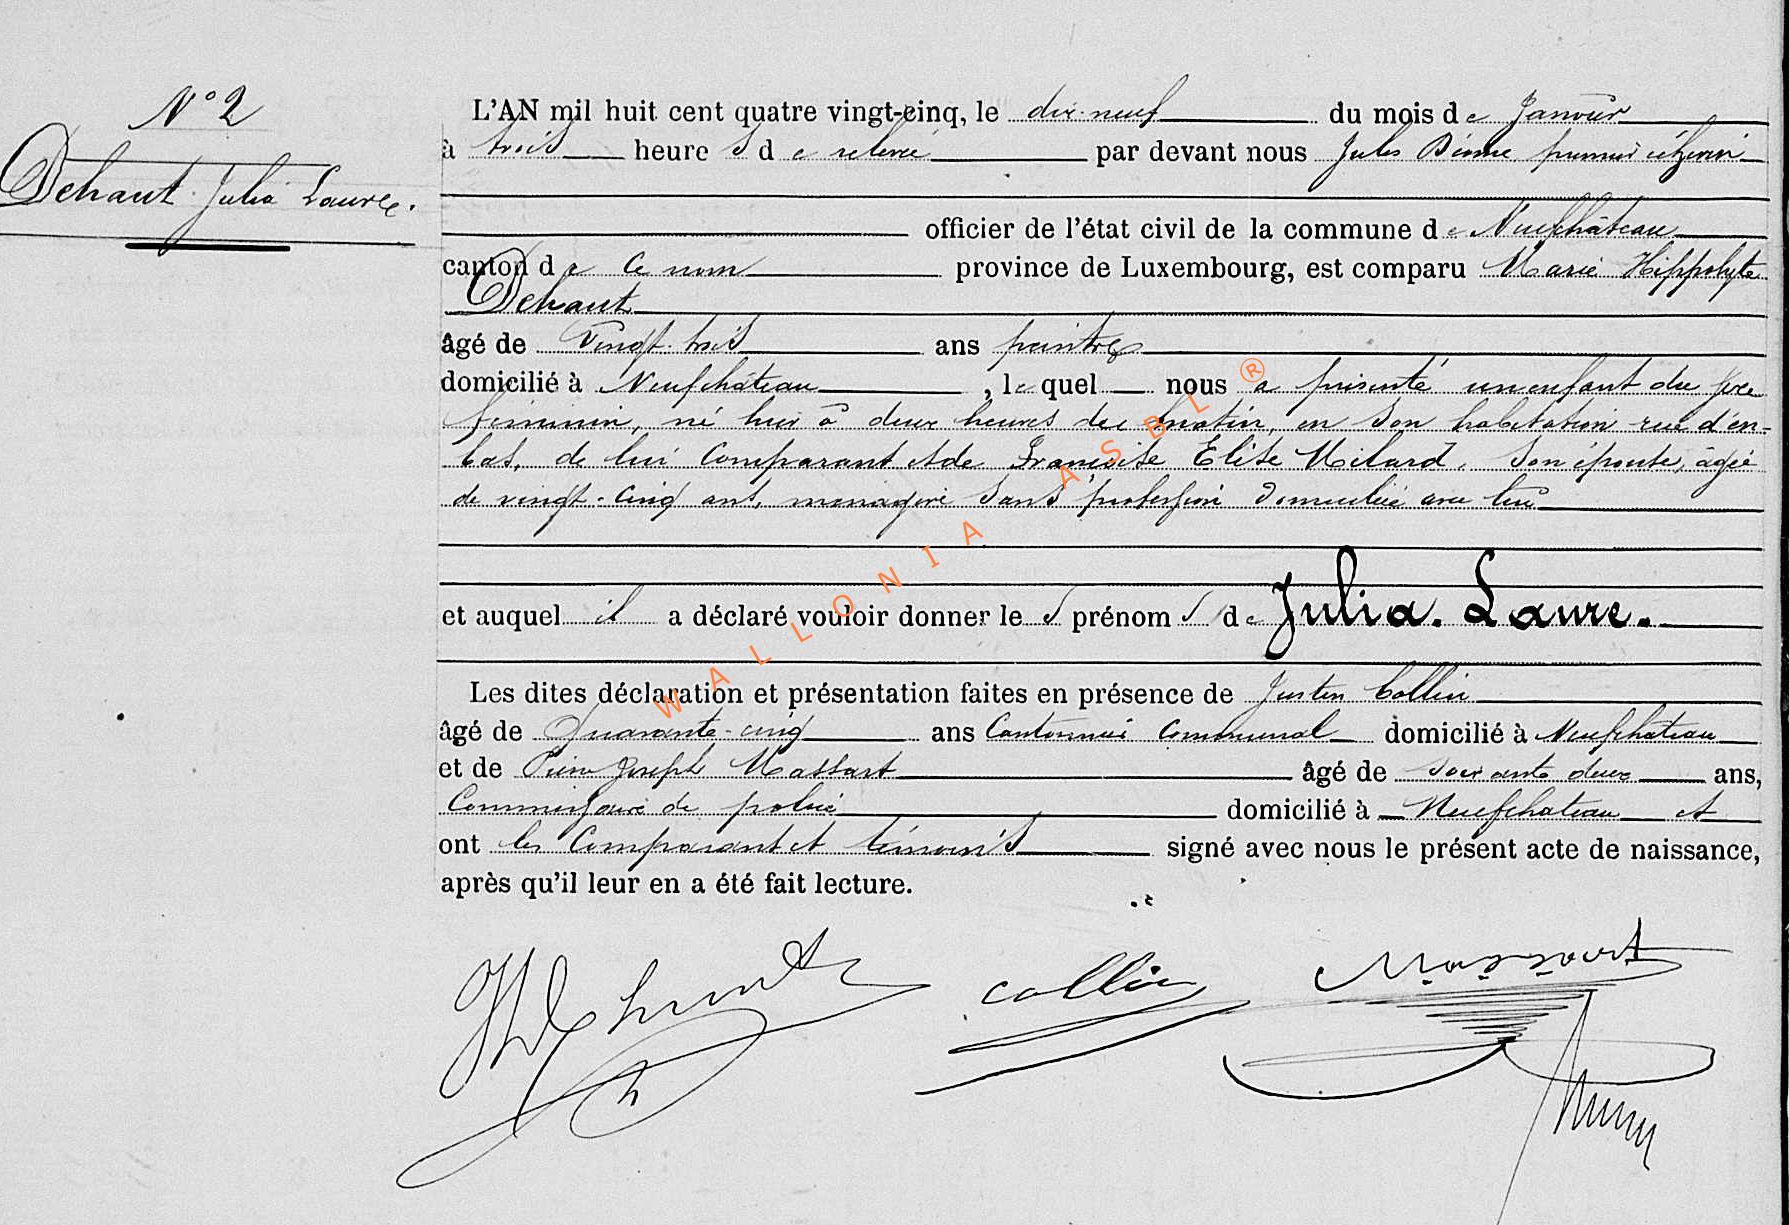 N° 2
Dehaut Julia Laure.
L'AN mil huit cent quatre vingt-cinq, le dix-neuf du mois de Janvier
à trois heures de relevée par devant nous Jules premier échevin
officier de l'état civil de la commune de Neufchâteau
canton de ce nom province de Luxembourg, est comparu Marie Hippolyte
Dehaut
âgé de vingt-trois ans peintre
domicilié à Neufchâteau, lequel nous a présenté un enfant du sexe
féminin, né hier à deux heures du matin, en son habitation rue d'en-
bas, de lui Comparant et de Françoise Elise Milard, son épouse, âgée
de vingt-cinq ans, menagère sans profession domiciliée avec lui
et auquel il a déclaré vouloir donner les prénoms de Julia. Laure.
Les dites déclaration et présentation faites en présence de Justin Collin
âgé de Quarante-cinq ans Cantonnier Communal domicilié à Neufchateau
et de Pierre Joseph Massart âgé de soixante deux ans,
Commissaire de police domicilié à Neufchateau et
ont les Comparant et témoins signé avec nous le présent acte de naissance,
après qu'il leur en a été fait lecture.
HDehaut collin Massart
WALLONIA ASBL ®